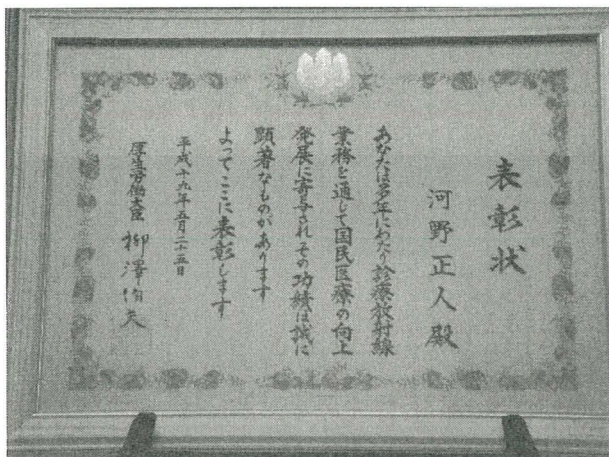 表彰状
河野正人殿
あなたは多年にわたり診療放射線
業務を通じて国民医療の向上
発展に寄与されその功績は誠に
顕著なものがあります
よってここに表彰します
平成十九年五月二十五日
厚生労働大臣 柳澤伯夫